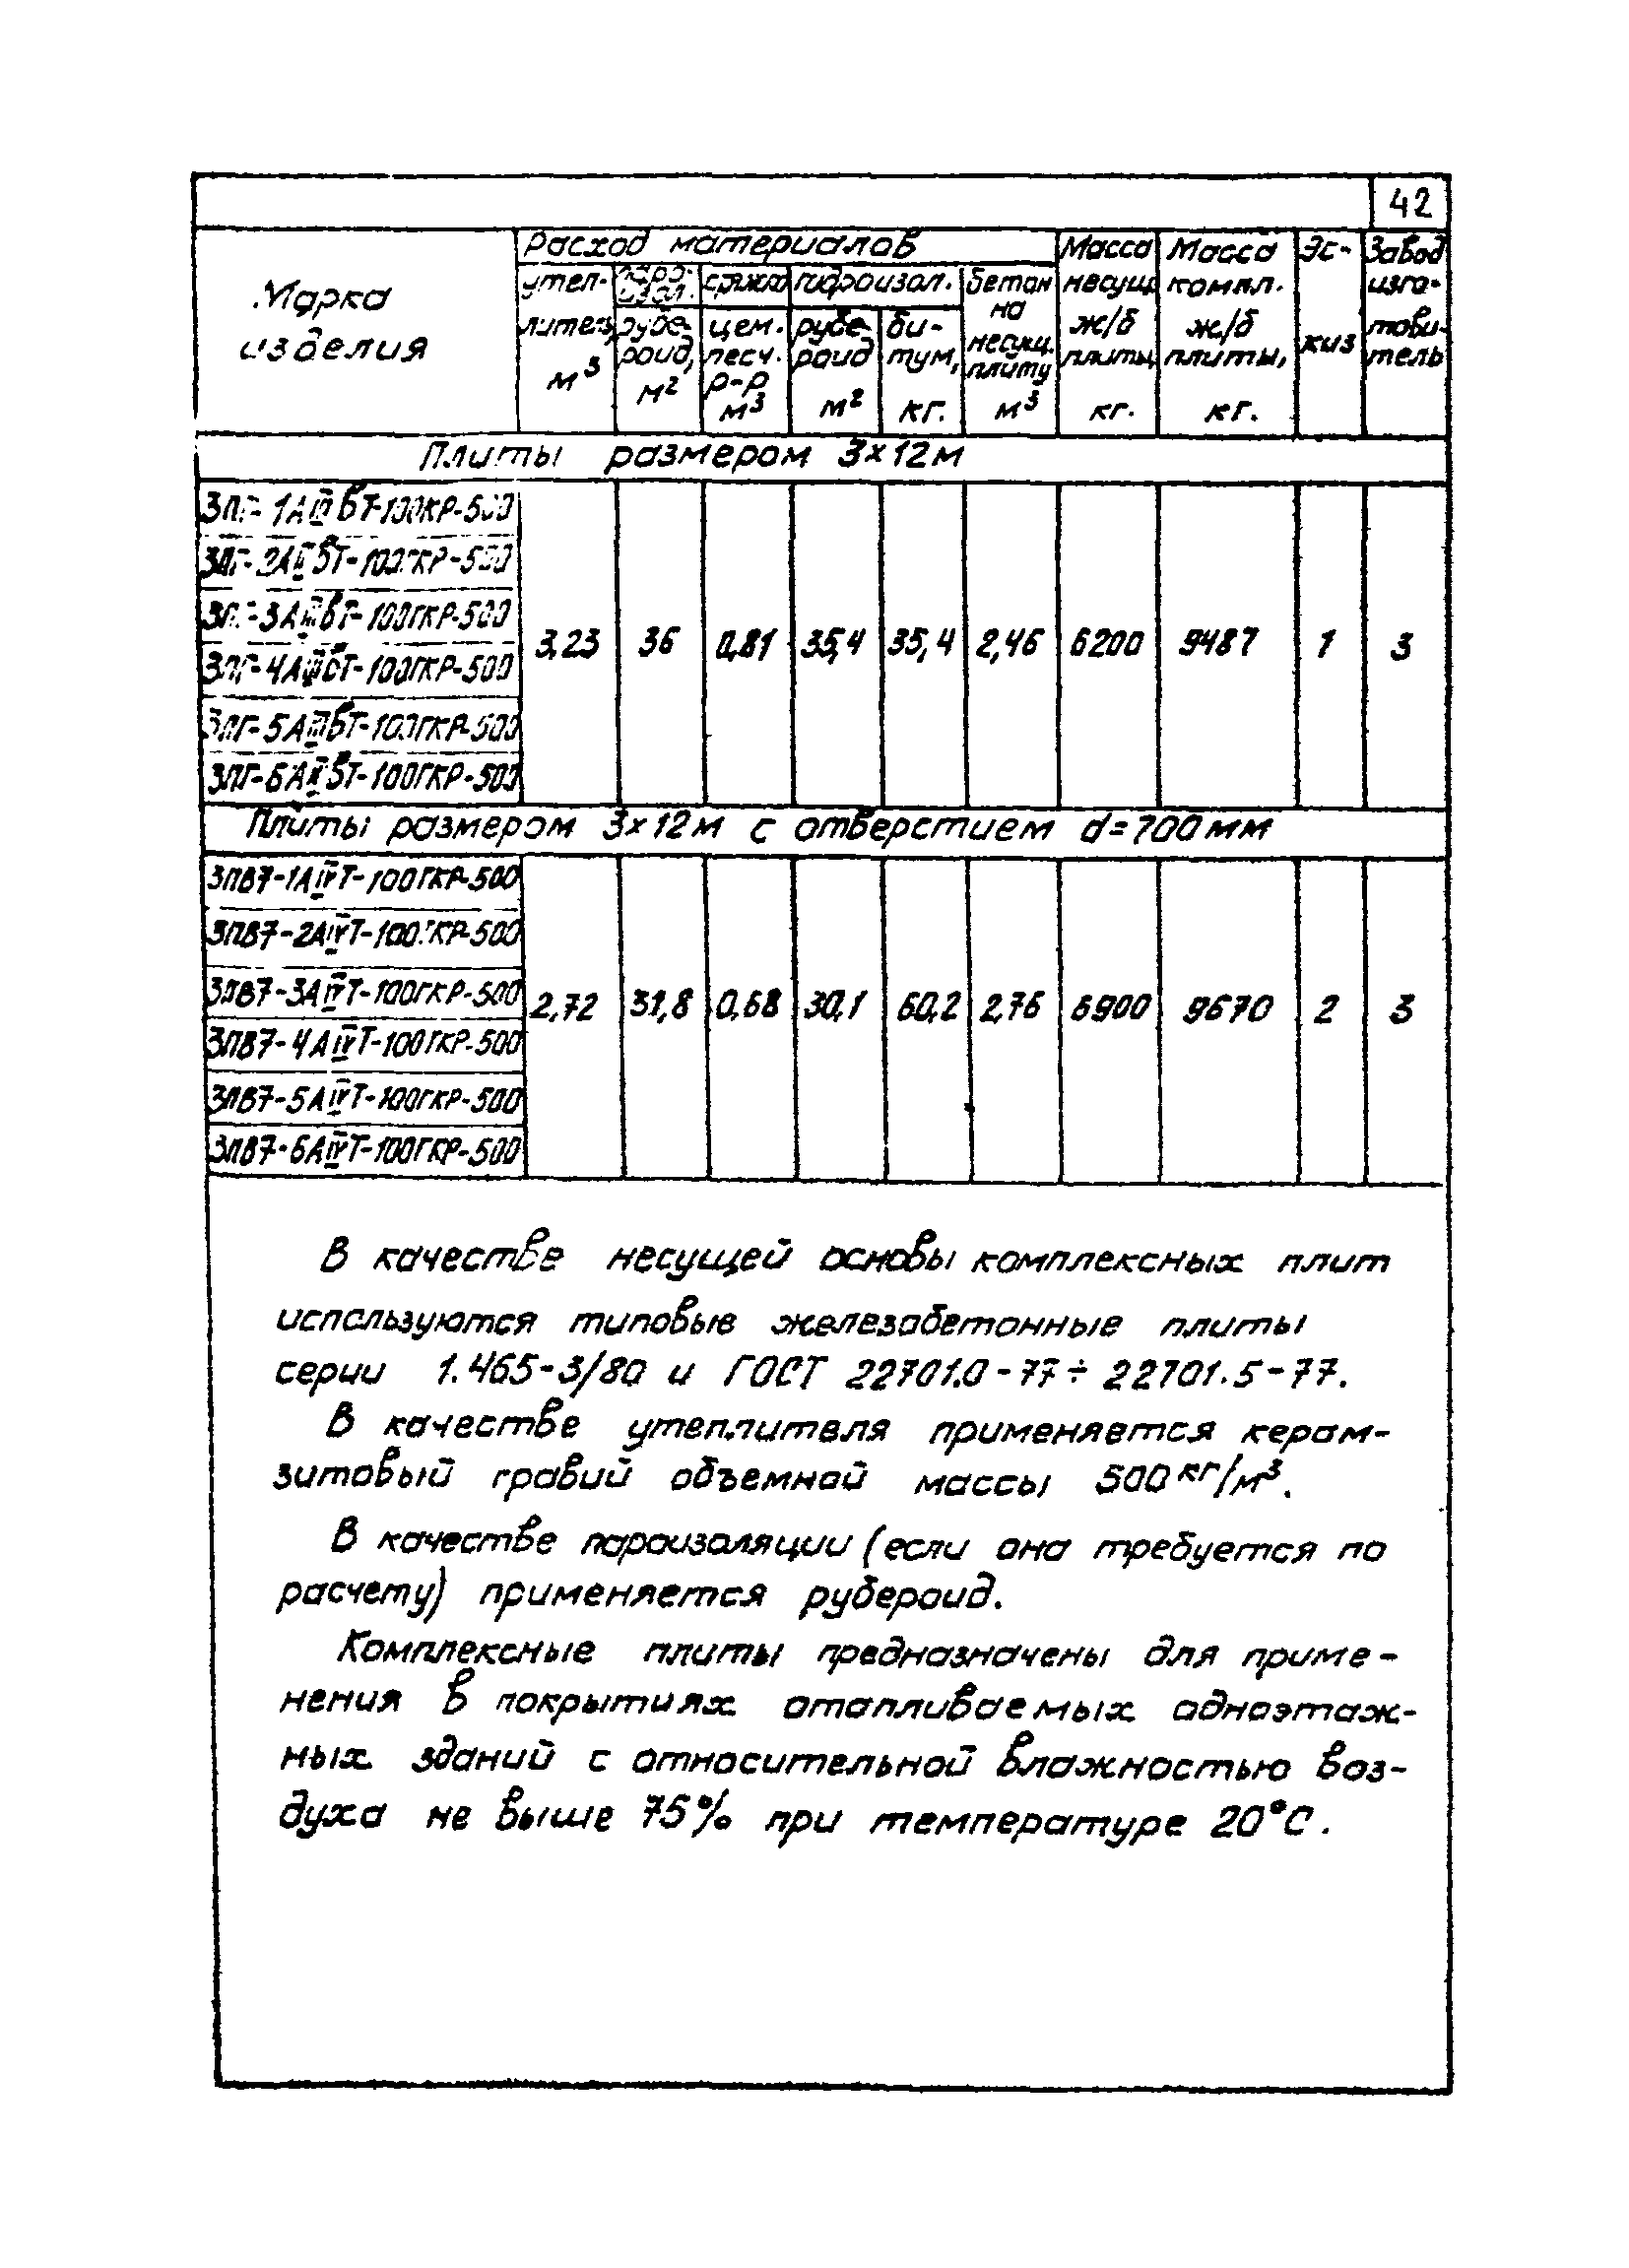 42
Марка изделия
Расход материалов
утеплитель, м³
пароизол. рубероид, м²
стяжка цем. песч. р-р м³
гидроизол. рубероид м²
битум, кг.
бетон на несущ. плиту м³
Масса несущ. ж/б плиты кг.
Масса компл. ж/б плиты, кг.
Эскиз
Завод изготовитель
Плиты размером 3×12м
3ПГ-1АIIIвТ-100ГКР-500
3ПГ-2АIIIвТ-100ГКР-500
3ПГ-3АIIIвТ-100ГКР-500
3ПГ-4АIIIвТ-100ГКР-500
3ПГ-5АIIIвТ-100ГКР-500
3ПГ-6АIIIвТ-100ГКР-500
3,23 36 0,81 35,4 35,4 2,46 6200 9487 1 3
Плиты размером 3×12м с отверстием d=700мм
3ПВ7-1АIVТ-100ГКР-500
3ПВ7-2АIVТ-100ГКР-500
3ПВ7-3АIVТ-100ГКР-500
3ПВ7-4АIVТ-100ГКР-500
3ПВ7-5АIVТ-100ГКР-500
3ПВ7-6АIVТ-100ГКР-500
2,72 31,8 0,68 30,1 60,2 2,76 6900 9670 2 3
В качестве несущей основы комплексных плит
используются типовые железобетонные плиты
серии 1.465-3/80 и ГОСТ 22701.0-77÷22701.5-77.
В качестве утеплителя применяется керам-
зитовый гравий объемной массы 500кг/м³.
В качестве пароизоляции (если она требуется по
расчету) применяется рубероид.
Комплексные плиты предназначены для приме-
нения в покрытиях отапливаемых одноэтаж-
ных зданий с относительной влажностью воз-
духа не выше 75% при температуре 20°С.